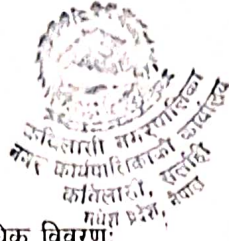 कविलासी नगरपालिका
नगर कार्यपालिकाको कार्यालय
कविलासी, सर्लाही
मधेश प्रदेश, नेपाल
विवरण: